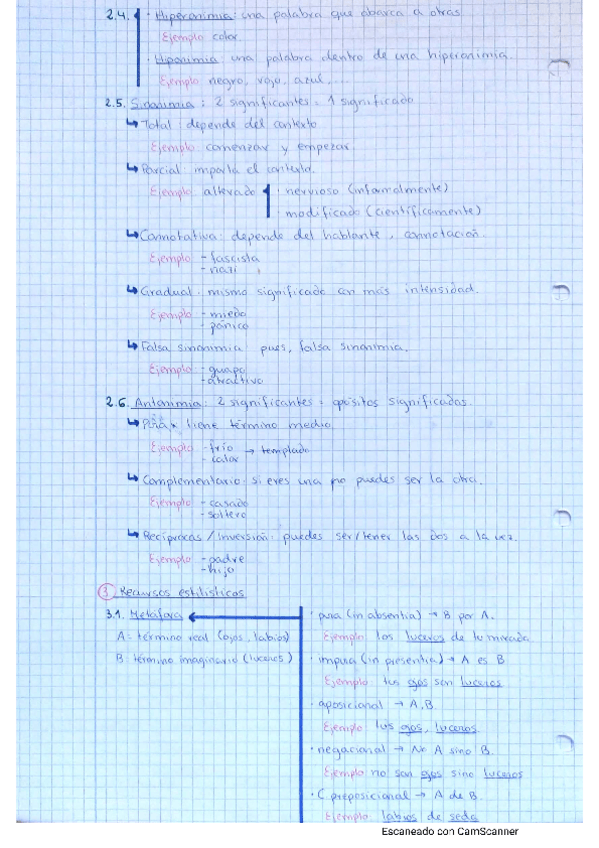 2.4. · Hiperonimia: una palabra que abarca a otras
Ejemplo color.
· Hiponimia: una palabra dentro de una hiperonimia.
Ejemplo negro, rojo, azul....
2.5. Sinonimia: 2 significantes = 1 significado
↳ Total: depende del contexto
Ejemplo comenzar y empezar.
↳ Parcial: importa el contexto.
Ejemplo alterado · nervioso (informalmente)
modificado (científicamente)
↳ Connotativa: depende del hablante, connotación.
Ejemplo - fascista
- nazi
↳ Gradual: mismo significado con más intensidad.
Ejemplo - miedo
- pánico
↳ Falsa sinonimia: pues, falsa sinonimia.
Ejemplo - guapo
- atractivo
2.6. Antonimia: 2 significantes = opositos significados.
↳ tiene término medio
Ejemplo - frío → templado
- calor
↳ Complementario: si eres una no puedes ser la otra.
Ejemplo - casado
- soltero
↳ Recíprocas / Inversión: puedes ser/tener las dos a la vez.
Ejemplo - padre
- hijo
3 Recursos estilísticos
3.1. Metáfora
A: término real (ojos, labios)
B: término imaginario (luceros)
· pura (in absentia) → B por A.
Ejemplo los luceros de tu mirada
· impura (in presentia) → A es B
Ejemplo tus ojos son luceros
· aposicional → A, B.
Ejemplo tus ojos, luceros
· negacional → No A sino B.
Ejemplo no son ojos sino luceros
· C preposicional → A de B.
Ejemplo labios de seda
Escaneado con CamScanner